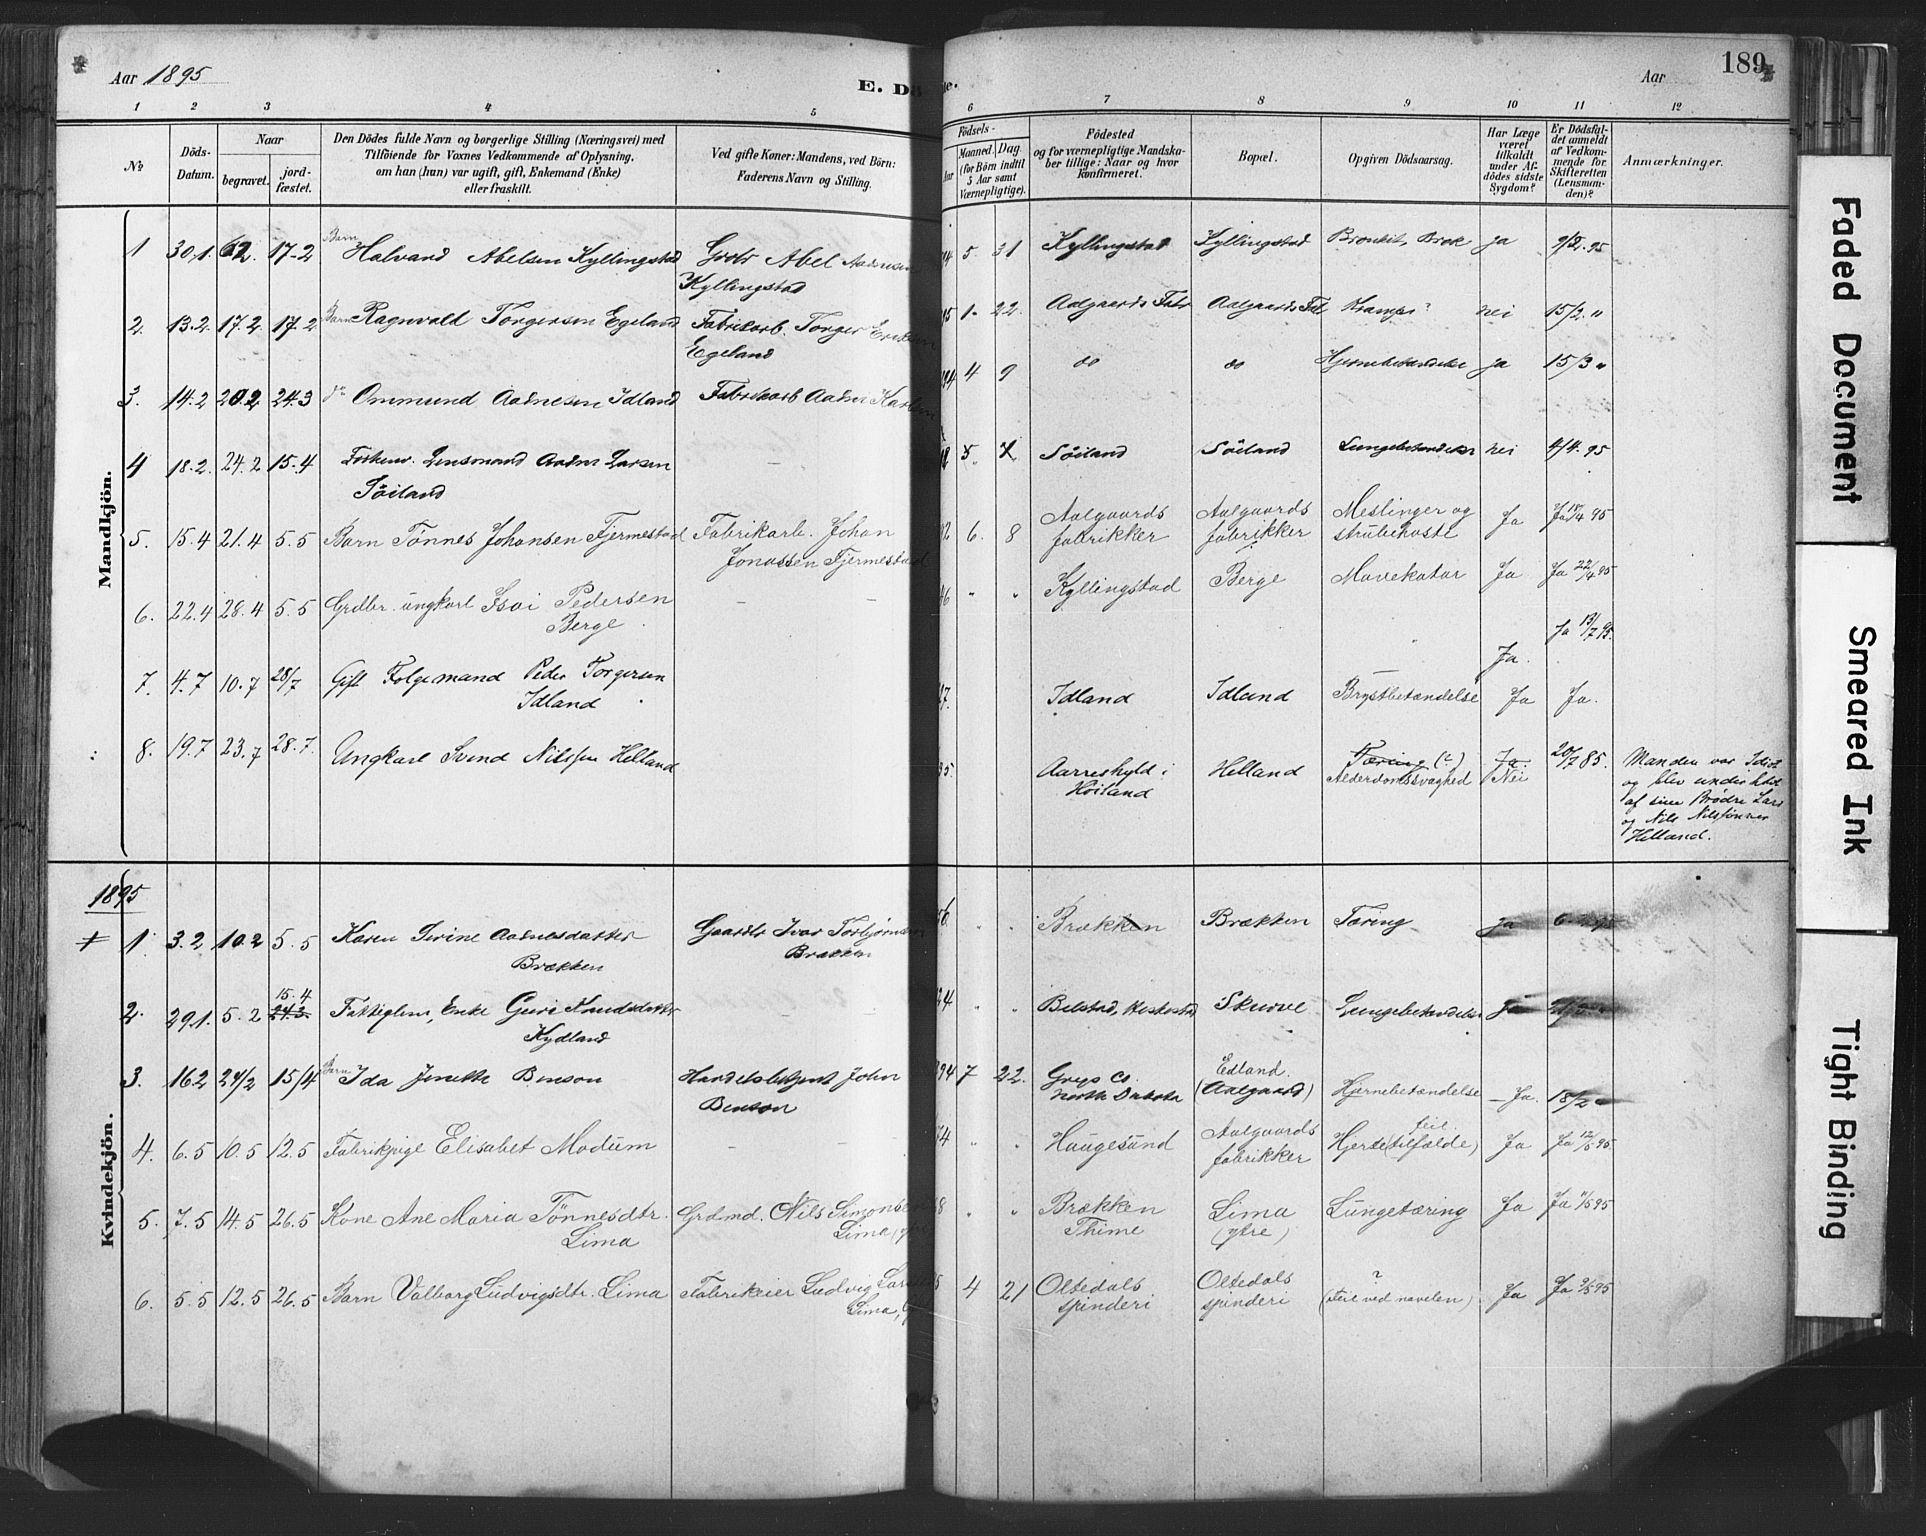 Aar 1895
E. Dö
ne.
Aar
189
1 2 3 4 5 6 7 8 9 10 11 12
No
Döds-Datum.
Naar
begravet.
jord-fæstet.
Den Dödes fulde Navn og borgerlige Stilling (Næringsvei) med
Tilföiende for Voxnes Vedkommende af Oplysning,
om han (hun) var ugift, gift, Enkemand (Enke)
eller fraskilt.
Ved gifte Koner: Mandens, ved Börn:
Faderens Navn og Stilling.
Födsels-
Aar
Maaned.
Dag
(for Börn indtil
5 Aar samt
Værnepligtige).
Födested
og for værnepligtige Mandska-
ber tillige: Naar og hvor
konfirmeret.
Bopæl.
Opgiven Dödsaarsag.
Har Læge
været
tilkaldt
under Af-
dödes sidste
Sygdom?
Er Dödsfal-
det anmeldt
af Vedkom-
mende for
Skifteretten
(Lensman-
den)?
Anmærkninger.
Mandkjön.
1 30.1. 17-2 Barn Halvard Abelsen Kyllingstad Grdbr Abel Aadnesen
Kyllingstad
5. 31 Kyllingstad Kyllingstad Bronkit, Brok ja 9/2.95
2. 13.2. 17.2. 17.2 Barn Ragnvald Torgersen Egeland Fabrikarb. Torger
Egeland
1- 22. Aalgaards Fabr Aalgaards Fabr Krampe? nei 15/2. "
3. 14.2 20.2 24.3 do Ommund Aadnesen Idland Fabrikarb Aadne Karlsen
4 9 do do Hjernebetændelse ja 15/3 "
4 18.2. 24.2 15.4 Forhenv. Lensmand Aadne Larsen
Söiland
-
Söiland Söiland Lungebetændelse nei 4/4.95
5. 15.4 21.4 5.5 Barn Tönnes Johansen Fjermestad Fabrikarb. Johan
Jonassen Fjermestad
6. 8 Aalgaards
fabrikker
Aalgaards
fabrikker
Meslinger og
strubehoste
Ja Ja 18/4 95
6. 22.4 28.4 5.5 Grdbr. ungkarl Esai Pedersen
Berge
-
" " Kyllingstad Berge Mavekatar Ja Ja 22/4 95
Ja. Ja 13/7 95.
7. 4.7 10.7 28/7 Gift Folgemand Peder Torgersen
Idland
Idland Idland Brystbetændelse Ja Ja.
8. 19.7 23.7 28.7. Ungkarl Svend Nilssen Helland
35. Aarreshyld i
Höiland
Helland Tæring (?)
Alderdomssvaghed
Ja
Nei
20/7 85.
Manden var Idiot
og blev underholdt
af sine Brödre Lars
og Nils Nilssönner
Helland.
1895
Kvindekjön.
+ 1. 3.2 10.2 5.5 Karen Serine Aadnesdatter
Brækken
Gaardbr Ivar Torbjörnsen
Brækken
" " Brækken Brækken Tæring Ja
2. 29.1. 5.2 15.4
24.3.
Fattiglem, Enke Guri Knudsdatter
Kydland
-
" " Belstad, Heskestad Skurve Lungebetændelse Ja
3. 16.2 24/2 15/4 Barn Ida Jenette Benson Handelsbetjent John
Benson
94 7 22. Grigs Co.
North Dakota
Edland.
(Aalgaard)
Hjernebetændelse - Ja. 18/2
4. 6.5 10.5 12.5 Fabrikpige Elisabet Modum -
" " Haugesund Aalgaards
fabrikker
feil.
Hjerte(tilfælde)
Ja Ja 12/5 95.
5. 7.5 14.5 26.5 Kone Ane Maria Tönnesdtr.
Lima
Grdmd. Nils Simonsen
Lima, ytre
" " Brækken
Thime
Lima
(ytre)
Lungetæring Ja Ja 11/5 95
6. 5.5 12.5 26.5 Barn Valborg Ludvigsdtr. Lima Fabrikeier Ludvig Lars
Lima,
4 21 Oltedals
spinderi
Oltedals
spinderi
?
(Feil ved navelen)
Ja Ja 9/5 95
Faded Document
Smeared Ink
Tight Binding